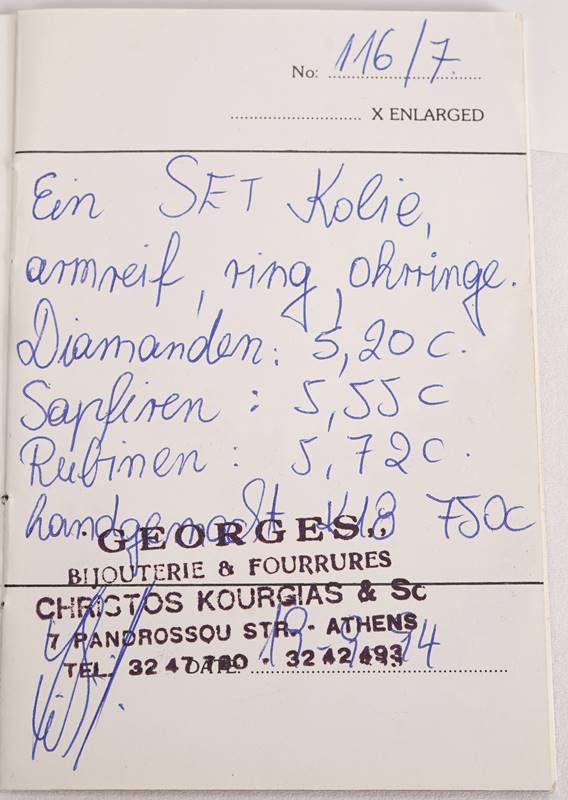 No: 116/7
X ENLARGED
Ein SET Kolie,
armreif, ring, ohrringe.
Diamanden: 5,20 c.
Sapfiren : 5,55 c
Rubinen : 5,72 c.
handgemacht K18 750c
"GEORGES"
BIJOUTERIE & FOURRURES
CHRISTOS KOURGIAS & So
7 PANDROSSOU STR. - ATHENS
TEL. 32 47 - 32 42 493
DATE: